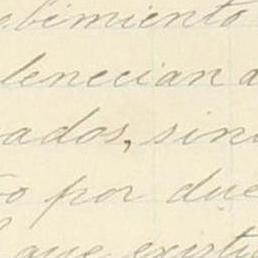 bimiento
lenecian a
ados, sino
o por due
que existi